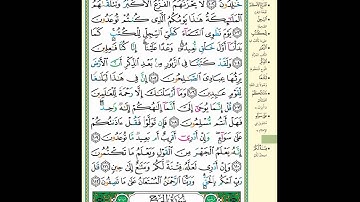 خَٰلِدُونَ ١٠٢ لَا يَحْزُنُهُمُ ٱلْفَزَعُ ٱلْأَكْبَرُ وَتَتَلَقَّىٰهُمُ
ٱلْمَلَٰٓئِكَةُ هَٰذَا يَوْمُكُمُ ٱلَّذِى كُنتُمْ تُوعَدُونَ
١٠٣ يَوْمَ نَطْوِى ٱلسَّمَآءَ كَطَىِّ ٱلسِّجِلِّ لِلْكُتُبِ كَمَا
بَدَأْنَآ أَوَّلَ خَلْقٍ نُّعِيدُهُۥ وَعْدًا عَلَيْنَآ إِنَّا كُنَّا فَٰعِلِينَ
١٠٤ وَلَقَدْ كَتَبْنَا فِى ٱلزَّبُورِ مِنۢ بَعْدِ ٱلذِّكْرِ أَنَّ ٱلْأَرْضَ
يَرِثُهَا عِبَادِىَ ٱلصَّٰلِحُونَ ١٠٥ إِنَّ فِى هَٰذَا لَبَلَٰغًا
لِّقَوْمٍ عَٰبِدِينَ ١٠٦ وَمَآ أَرْسَلْنَٰكَ إِلَّا رَحْمَةً لِّلْعَٰلَمِينَ
١٠٧ قُلْ إِنَّمَا يُوحَىٰٓ إِلَىَّ أَنَّمَآ إِلَٰهُكُمْ إِلَٰهٌ وَٰحِدٌ
فَهَلْ أَنتُم مُّسْلِمُونَ ١٠٨ فَإِن تَوَلَّوْا۟ فَقُلْ ءَاذَنتُكُمْ
عَلَىٰ سَوَآءٍ وَإِنْ أَدْرِىٓ أَقَرِيبٌ أَم بَعِيدٌ مَّا تُوعَدُونَ ١٠٩
إِنَّهُۥ يَعْلَمُ ٱلْجَهْرَ مِنَ ٱلْقَوْلِ وَيَعْلَمُ مَا تَكْتُمُونَ
١١٠ وَإِنْ أَدْرِى لَعَلَّهُۥ فِتْنَةٌ لَّكُمْ وَمَتَٰعٌ إِلَىٰ حِينٍ ١١١ قَٰلَ
رَبِّ ٱحْكُم بِٱلْحَقِّ وَرَبُّنَا ٱلرَّحْمَٰنُ ٱلْمُسْتَعَانُ عَلَىٰ مَا تَصِفُونَ ١١٢
سُورَةُ ٱلْحَجِّ